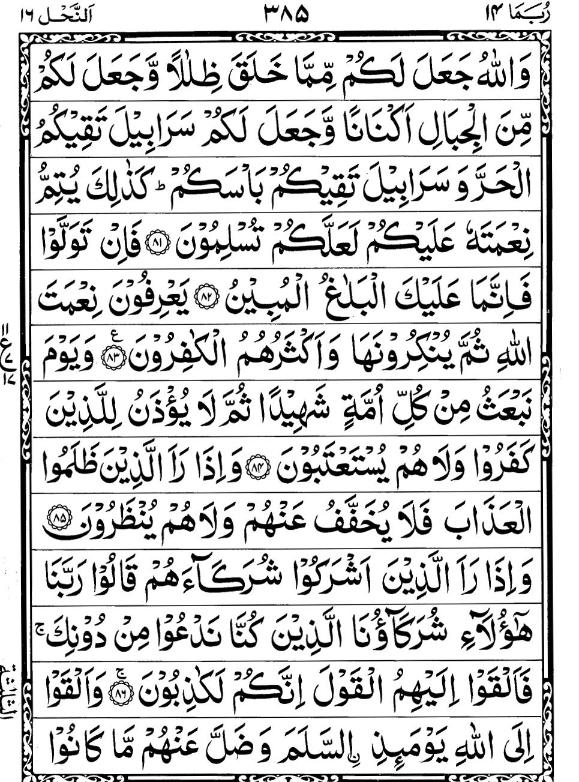 رُبَمَا ١٤ ٣٨٥ اَلنَّحْل ١٦
وَاللّٰهُ جَعَلَ لَكُمْ مِّمَّا خَلَقَ ظِلٰلًا وَّجَعَلَ لَكُمْ
مِّنَ الْجِبَالِ اَكْنَانًا وَّجَعَلَ لَكُمْ سَرَابِيْلَ تَقِيْكُمُ
الْحَرَّ وَ سَرَابِيْلَ تَقِيْكُمْ بَاْسَكُمْ ؕ كَذٰلِكَ يُتِمُّ
نِعْمَتَهٗ عَلَيْكُمْ لَعَلَّكُمْ تُسْلِمُوْنَ ﴿۸۱﴾ فَاِنْ تَوَلَّوْا
فَاِنَّمَا عَلَيْكَ الْبَلٰغُ الْمُبِيْنُ ﴿۸۲﴾ يَعْرِفُوْنَ نِعْمَتَ
اللّٰهِ ثُمَّ يُنْكِرُوْنَهَا وَاَكْثَرُهُمُ الْكٰفِرُوْنَ ﴿۸۳﴾ ع وَيَوْمَ
نَبْعَثُ مِنْ كُلِّ اُمَّةٍ شَهِيْدًا ثُمَّ لَا يُؤْذَنُ لِلَّذِيْنَ
كَفَرُوْا وَلَا هُمْ يُسْتَعْتَبُوْنَ ﴿۸۴﴾ وَاِذَا رَاَ الَّذِيْنَ ظَلَمُوا
الْعَذَابَ فَلَا يُخَفَّفُ عَنْهُمْ وَلَا هُمْ يُنْظَرُوْنَ ﴿۸۵﴾
وَاِذَا رَاَ الَّذِيْنَ اَشْرَكُوْا شُرَكَآءَهُمْ قَالُوْا رَبَّنَا
هٰٓؤُلَآءِ شُرَكَآؤُنَا الَّذِيْنَ كُنَّا نَدْعُوْا مِنْ دُوْنِكَ ۚ
فَاَلْقَوْا اِلَيْهِمُ الْقَوْلَ اِنَّكُمْ لَكٰذِبُوْنَ ۚ﴿۸۶﴾ وَاَلْقَوْا
اِلَى اللّٰهِ يَوْمَىِٕذِ ۣالسَّلَمَ وَضَلَّ عَنْهُمْ مَّا كَانُوْا